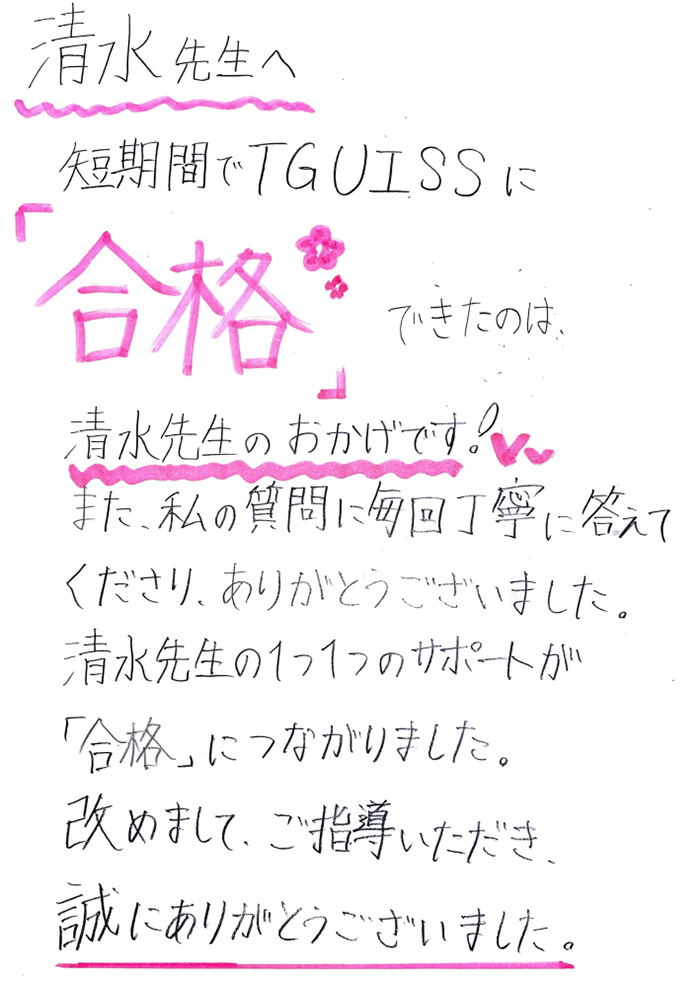 清水先生へ
短期間でTGUISSに
「合格」
できたのは、
清水先生のおかげです!
また、私の質問に毎回丁寧に答えて
くださり、ありがとうございました。
清水先生の1つ1つのサポートが
「合格」につながりました。
改めまして、ご指導いただき、
誠にありがとうございました。